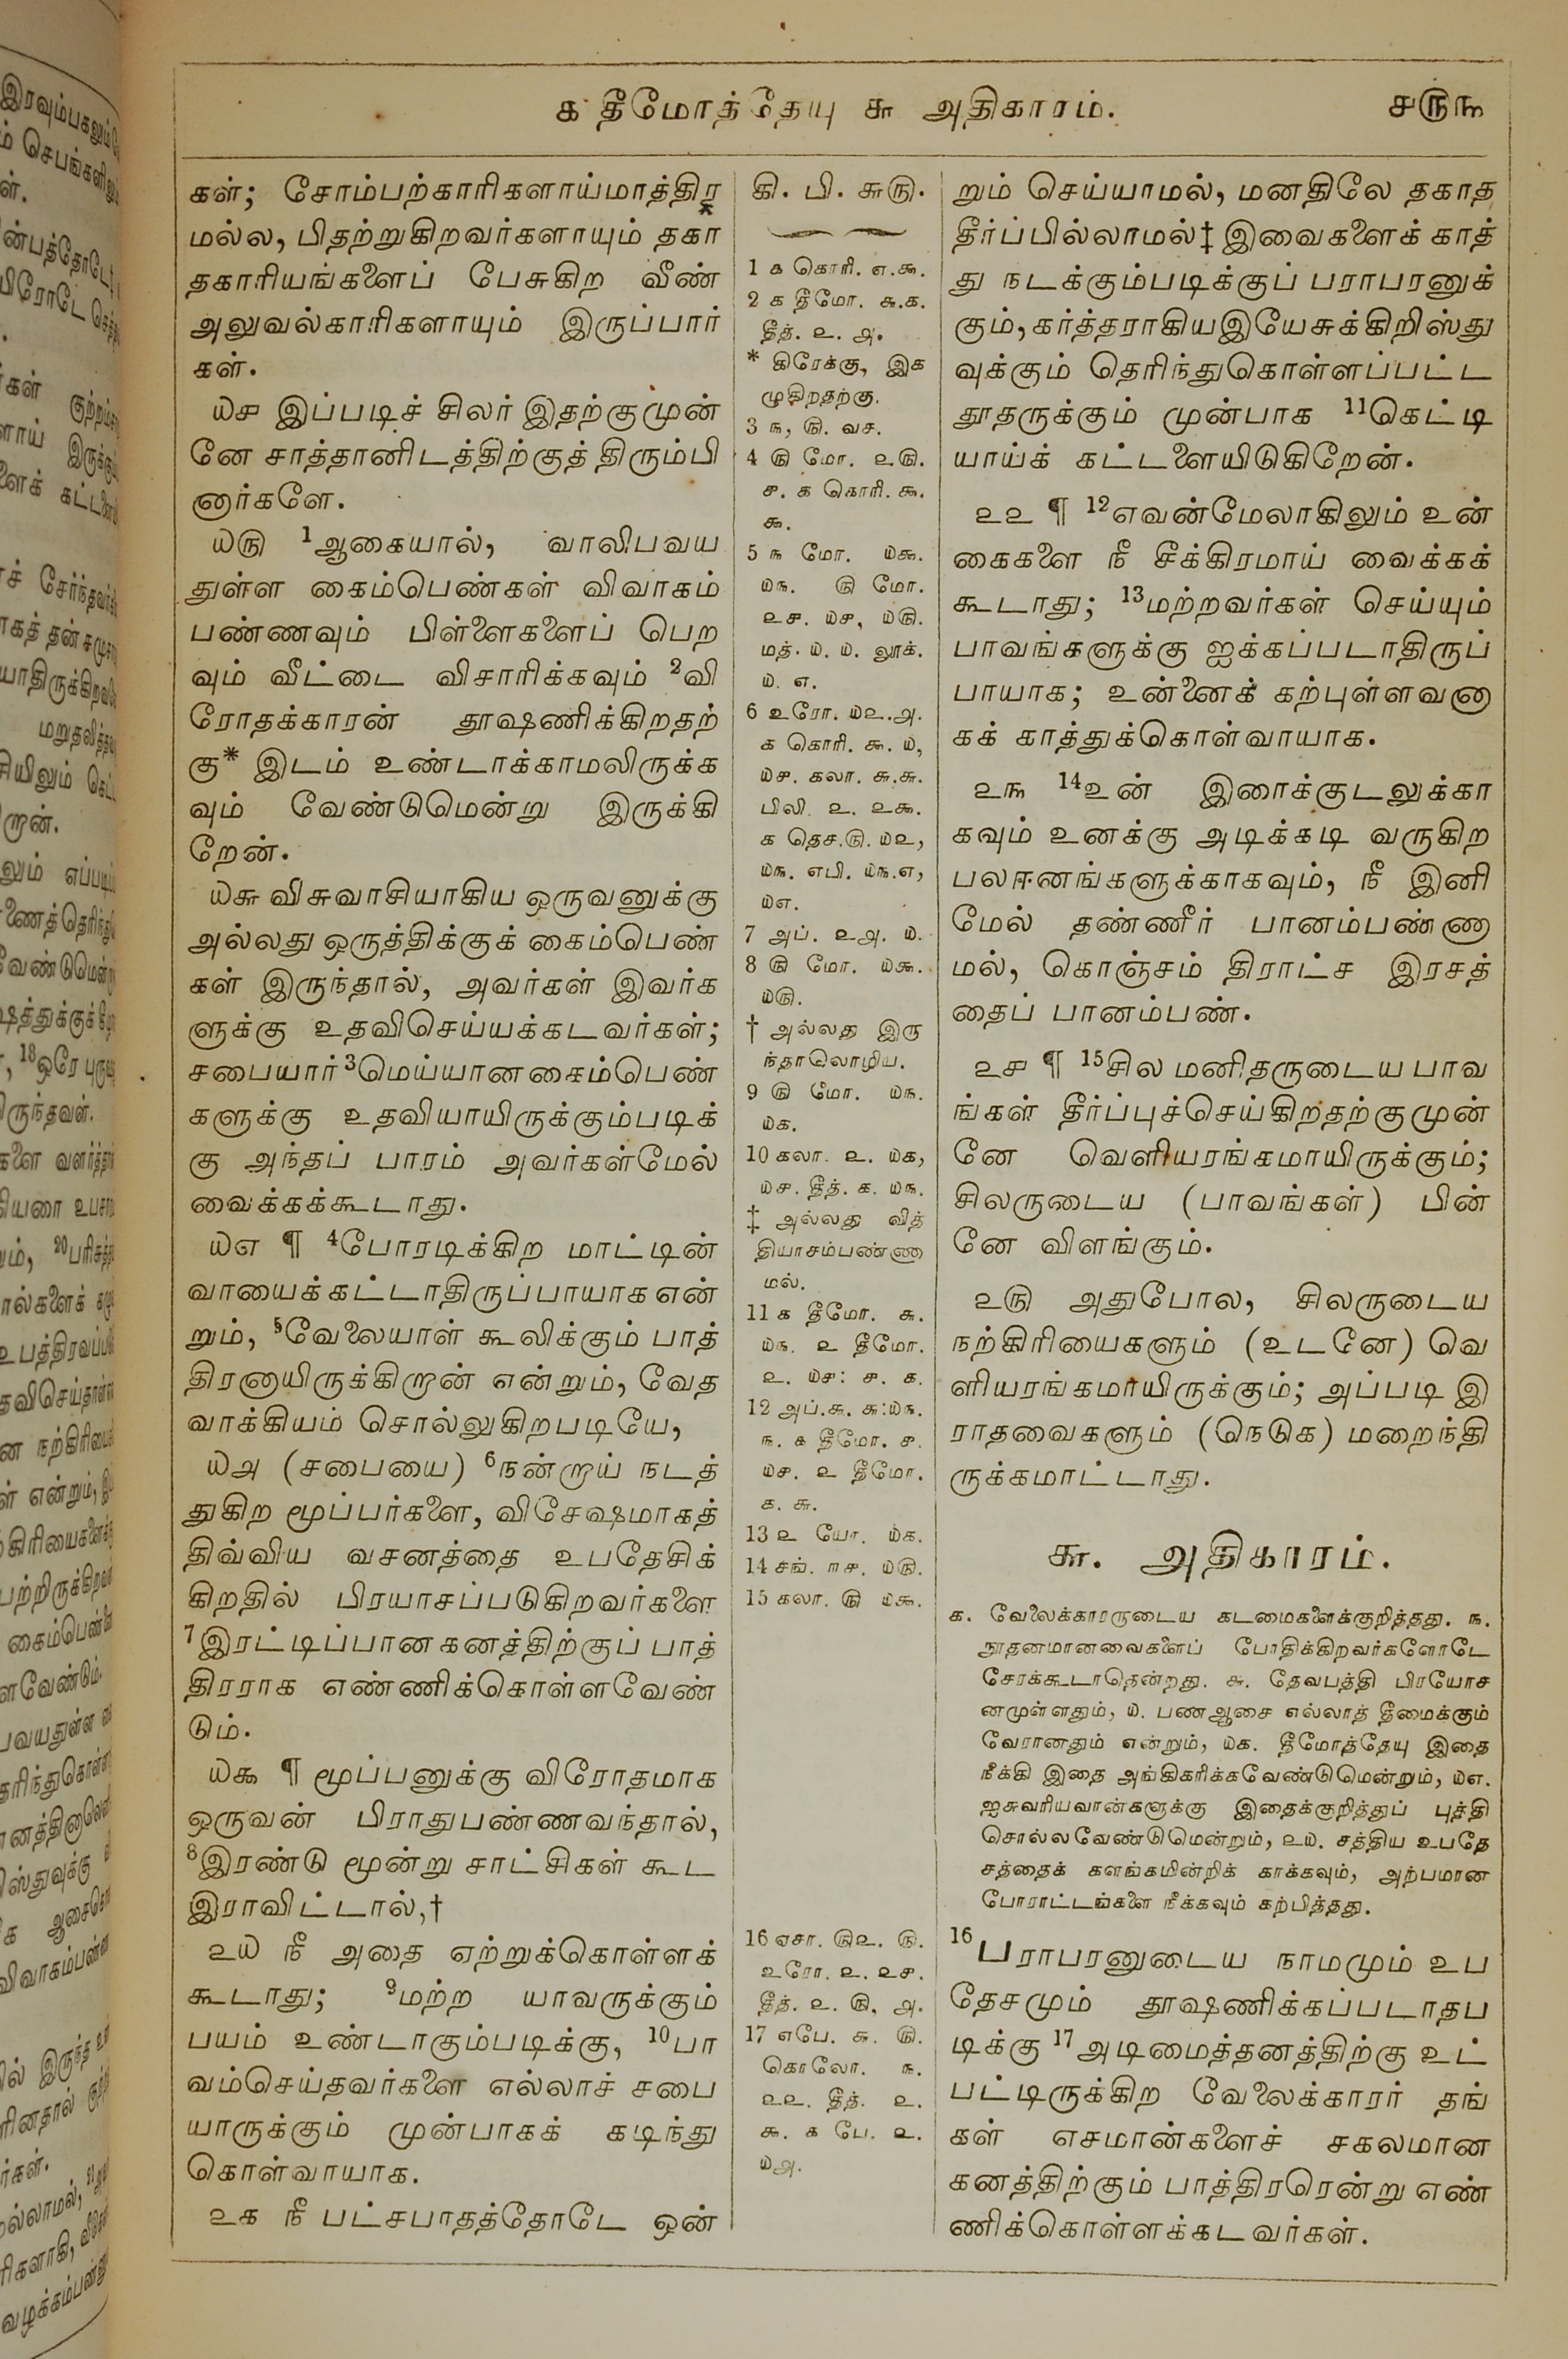 ௧ தீமோத்தேயு ௬ அதிகாரம்.
௪௫௩
கள்; சோம்பற்காரிகளாய்மாத்திர
மல்ல, பிதற்றுகிறவர்களாயும் தகா
தகாரியங்களைப் பேசுகிற வீண்
அலுவல்காரிகளாயும் இருப்பார்
கள்.
௰௪ இப்படிச் சிலர் இதற்குமுன்
னே சாத்தானிடத்திற்குத் திரும்பி
னார்களே.
௰௫ 1ஆகையால், வாலிபவய
துள்ள கைம்பெண்கள் விவாகம்
பண்ணவும் பிள்ளைகளைப் பெற
வும் வீட்டை விசாரிக்கவும் 2வி
ரோதக்காரன் தூஷணிக்கிறதற்
கு* இடம் உண்டாக்காமலிருக்க
வும் வேண்டுமென்று இருக்கி
றேன்.
௰௬ விசுவாசியாகிய ஒருவனுக்கு
அல்லது ஒருத்திக்குக் கைம்பெண்
கள் இருந்தால், அவர்கள் இவர்க
ளுக்கு உதவிசெய்யக்கடவர்கள்;
சபையார் 3மெய்யான கைம்பெண்
களுக்கு உதவியாயிருக்கும்படிக்
கு அந்தப் பாரம் அவர்கள்மேல்
வைக்கக்கூடாது.
௰௭ ¶ 4போரடிக்கிற மாட்டின்
வாயைக்கட்டாதிருப்பாயாக என்
றும், 5வேலையாள் கூலிக்கும் பாத்
திரனாயிருக்கிறான் என்றும், வேத
வாக்கியம் சொல்லுகிறபடியே,
௰௮ (சபையை) 6நன்றாய் நடத்
துகிற மூப்பர்களை, விசேஷமாகத்
திவ்விய வசனத்தை உபதேசிக்
கிறதில் பிரயாசப்படுகிறவர்களை
7இரட்டிப்பான கனத்திற்குப் பாத்
திரராக எண்ணிக்கொள்ளவேண்
டும்.
௰௯ ¶ மூப்பனுக்கு விரோதமாக
ஒருவன் பிராதுபண்ணவந்தால்,
8இரண்டு மூன்று சாட்சிகள் கூட
இராவிட்டால்,†
௨௰ நீ அதை ஏற்றுக்கொள்ளக்
கூடாது; 9மற்ற யாவருக்கும்
பயம் உண்டாகும்படிக்கு, 10பா
வம்செய்தவர்களை எல்லாச் சபை
யாருக்கும் முன்பாகக் கடிந்து
கொள்வாயாக.
௨௧ நீ பட்சபாதத்தோடே ஒன்
கி. பி. ௬௫.
1 ௧ கொரி. ௭.௯.
2 ௧ தீமோ. ௬.௧.
தீத். ௨. ௮.
* கிரேக்கு, இக
ழுகிறதற்கு.
3 ௩, ௫. வச.
4 ௫ மோ. ௨௫.
௪. ௧ கொரி. ௯.
௯.
5 ௩ மோ. ௰௯.
௰௩. ௫ மோ.
௨௪. ௰௪, ௰௫.
மத். ௰. ௰. லூக்.
௰. ௭.
6 உரோ. ௰௨.௮.
௧ கொரி. ௯. ௰,
௰௪. கலா. ௬.௬.
பிலி. ௨. ௨௯.
௧ தெச.௫. ௰௨,
௰௩. எபி. ௰௩.௭,
௰௭.
7 அப். ௨௮. ௰.
8 ௫ மோ. ௰௯.
௰௫.
† அல்லது இரு
ந்தாலொழிய.
9 ௫ மோ. ௰௩.
௰௧.
10 கலா. ௨. ௰௧,
௰௪. தீத். ௧. ௰௩.
‡ அல்லது வித்
தியாசம்பண்ணா
மல்.
11 ௧ தீமோ. ௬.
௰௩. ௨ தீமோ.
௨. ௰௪: ௪. ௧.
12 அப்.௬. ௬:௰௩.
௩. ௧ தீமோ. ௪.
௰௪. ௨ தீமோ.
௧. ௬.
13 ௨ யோ. ௰௧.
14 சங். ௱௪. ௰௫.
15 கலா. ௫ ௰௯.
16 ஏசா. ௫௨. ௫.
உரோ. ௨. ௨௪.
தீத். ௨. ௫, ௮.
17 எபே. ௬. ௫.
கொலோ. ௩.
௨௨. தீத். ௨.
௯. ௧ பே. ௨.
௰௮.
றும் செய்யாமல், மனதிலே தகாத
தீர்ப்பில்லாமல்‡ இவைகளைக் காத்
து நடக்கும்படிக்குப் பராபரனுக்
கும், கர்த்தராகிய இயேசுக்கிறிஸ்து
வுக்கும் தெரிந்துகொள்ளப்பட்ட
தூதருக்கும் முன்பாக 11கெட்டி
யாய்க் கட்டளையிடுகிறேன்.
௨௨ ¶ 12எவன்மேலாகிலும் உன்
கைகளை நீ சீக்கிரமாய் வைக்கக்
கூடாது; 13மற்றவர்கள் செய்யும்
பாவங்களுக்கு ஐக்கப்படாதிருப்
பாயாக; உன்னைக் கற்புள்ளவனா
கக் காத்துக்கொள்வாயாக.
௨௩ 14உன் இரைக்குடலுக்கா
கவும் உனக்கு அடிக்கடி வருகிற
பலஈனங்களுக்காகவும், நீ இனி
மேல் தண்ணீர் பானம்பண்ணா
மல், கொஞ்சம் திராட்ச இரசத்
தைப் பானம்பண்.
௨௪ ¶ 15சில மனிதருடைய பாவ
ங்கள் தீர்ப்புச்செய்கிறதற்குமுன்
னே வெளியரங்கமாயிருக்கும்;
சிலருடைய (பாவங்கள்) பின்
னே விளங்கும்.
௨௫ அதுபோல, சிலருடைய
நற்கிரியைகளும் (உடனே) வெ
ளியரங்கமாயிருக்கும்; அப்படி இ
ராதவைகளும் (நெடுக) மறைந்தி
ருக்கமாட்டாது.
௬. அதிகாரம்.
௧. வேலைக்காரருடைய கடமைகளைக்குறித்தது. ௩.
நூதனமானவைகளைப் போதிக்கிறவர்களோடே
சேரக்கூடாதென்றது. ௬. தேவபத்தி பிரயோச
னமுள்ளதும், ௰. பணஆசை எல்லாத் தீமைக்கும்
வேரானதும் என்றும், ௰௧. தீமோத்தேயு இதை
நீக்கி இதை அங்கிகரிக்கவேண்டுமென்றும், ௰௭.
ஐசுவரியவான்களுக்கு இதைக்குறித்துப் புத்தி
சொல்லவேண்டுமென்றும், ௨௰. சத்திய உபதே
சத்தைக் களங்கமின்றிக் காக்கவும், அற்பமான
போராட்டங்களை நீக்கவும் கற்பித்தது.
16பராபரனுடைய நாமமும் உப
தேசமும் தூஷணிக்கப்படாதப
டிக்கு 17அடிமைத்தனத்திற்கு உட்
பட்டிருக்கிற வேலைக்காரர் தங்
கள் எசமான்களைச் சகலமான
கனத்திற்கும் பாத்திரரென்று எண்
ணிக்கொள்ளக்கடவர்கள்.